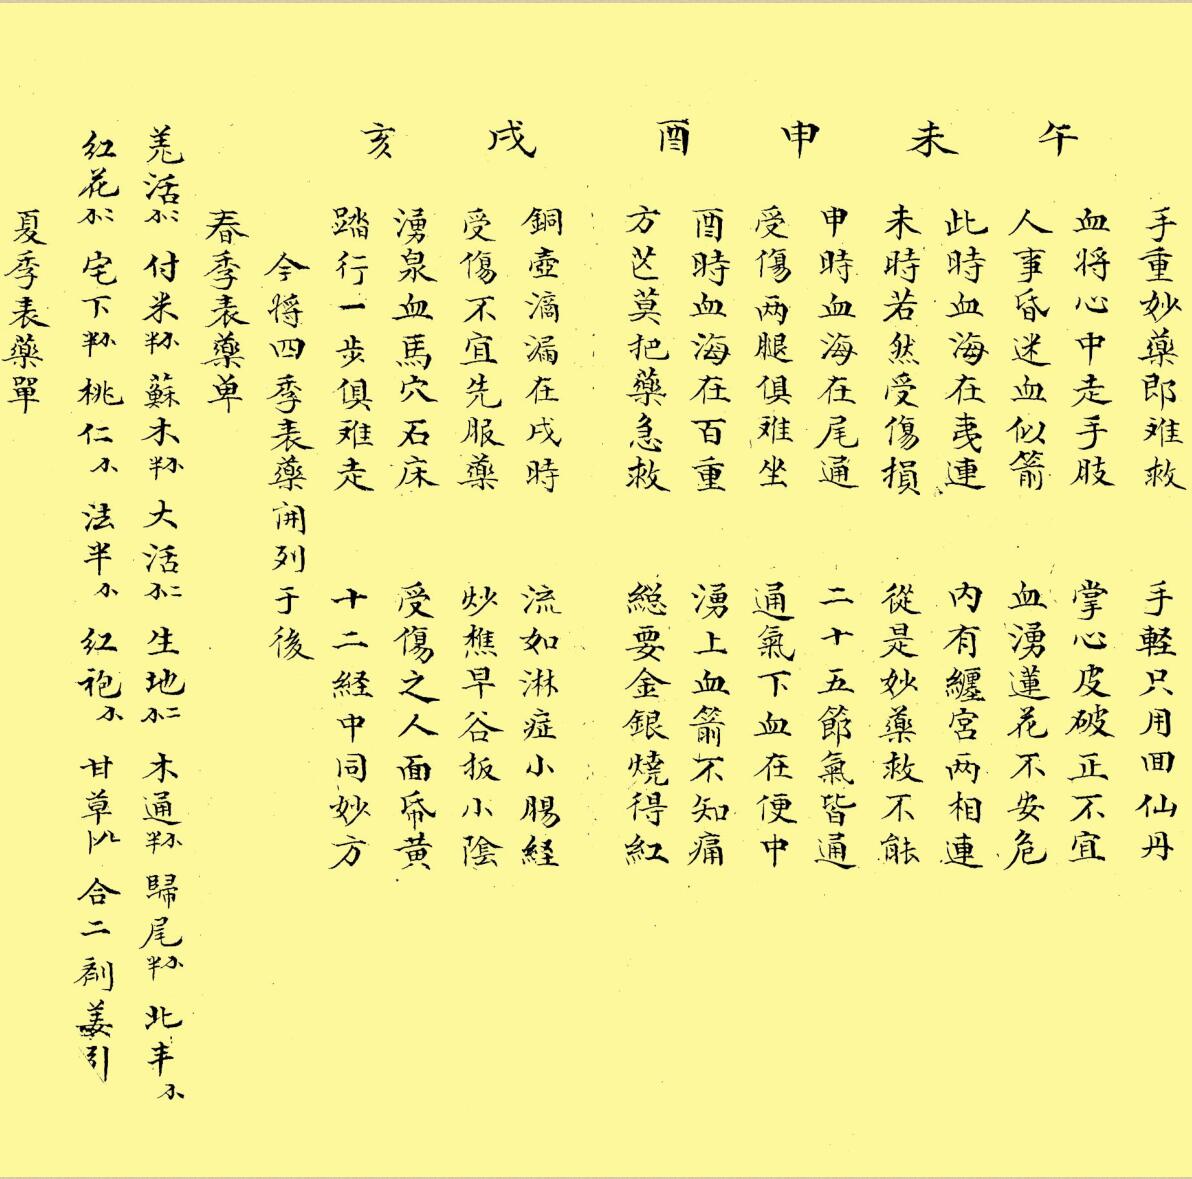 手重妙藥郎难救 手軽只用回仙丹
午
血将心中走手肢 掌心皮破正不宜
人事昏迷血似箭 血湧蓮花不安危
未
此時血海在夷連 内有纏宮两相連
未時若然受傷損 從是妙藥救不能
申
申時血海在尾通 二十五節氣皆通
受傷两腿俱难坐 通氣下血在便中
酉
酉時血海在百重 湧上血箭不知痛
方芒莫把藥急救 総要金銀燒得紅
戌
銅壺滴漏在戌時 流如淋症小腸経
受傷不宜先服藥 炒樵早谷扳小陰
亥
湧泉血馬穴石床 受傷之人面帋黃
踏行一步俱难走 十二経中同妙方
今將四季表藥開列于後
春季表藥单
羗活 付米 蘇木 大活 生地 木通 歸尾 北丰
红花 宅下 桃仁 法半 红袍 甘草 合二劑 姜引
夏季表藥單